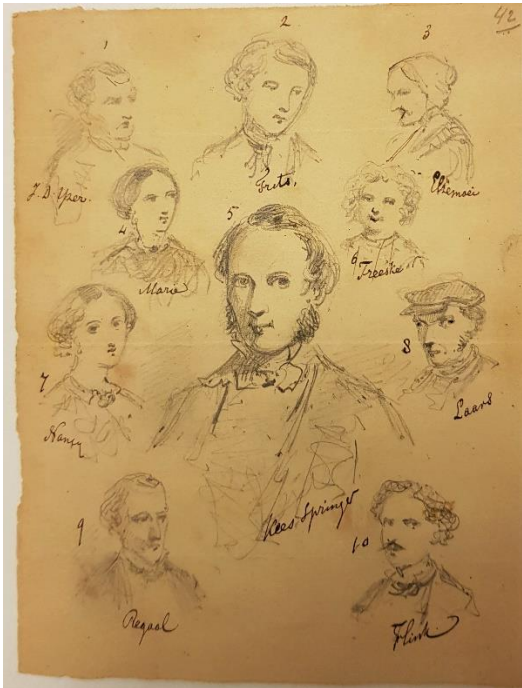 42
1
2
3
J. D. Yper.
Frits,
Elsemoei
4
Marie
5
6
Freeske
7
Nansy
8
Laars
Kees Springer
9
Regaal
10
Flink